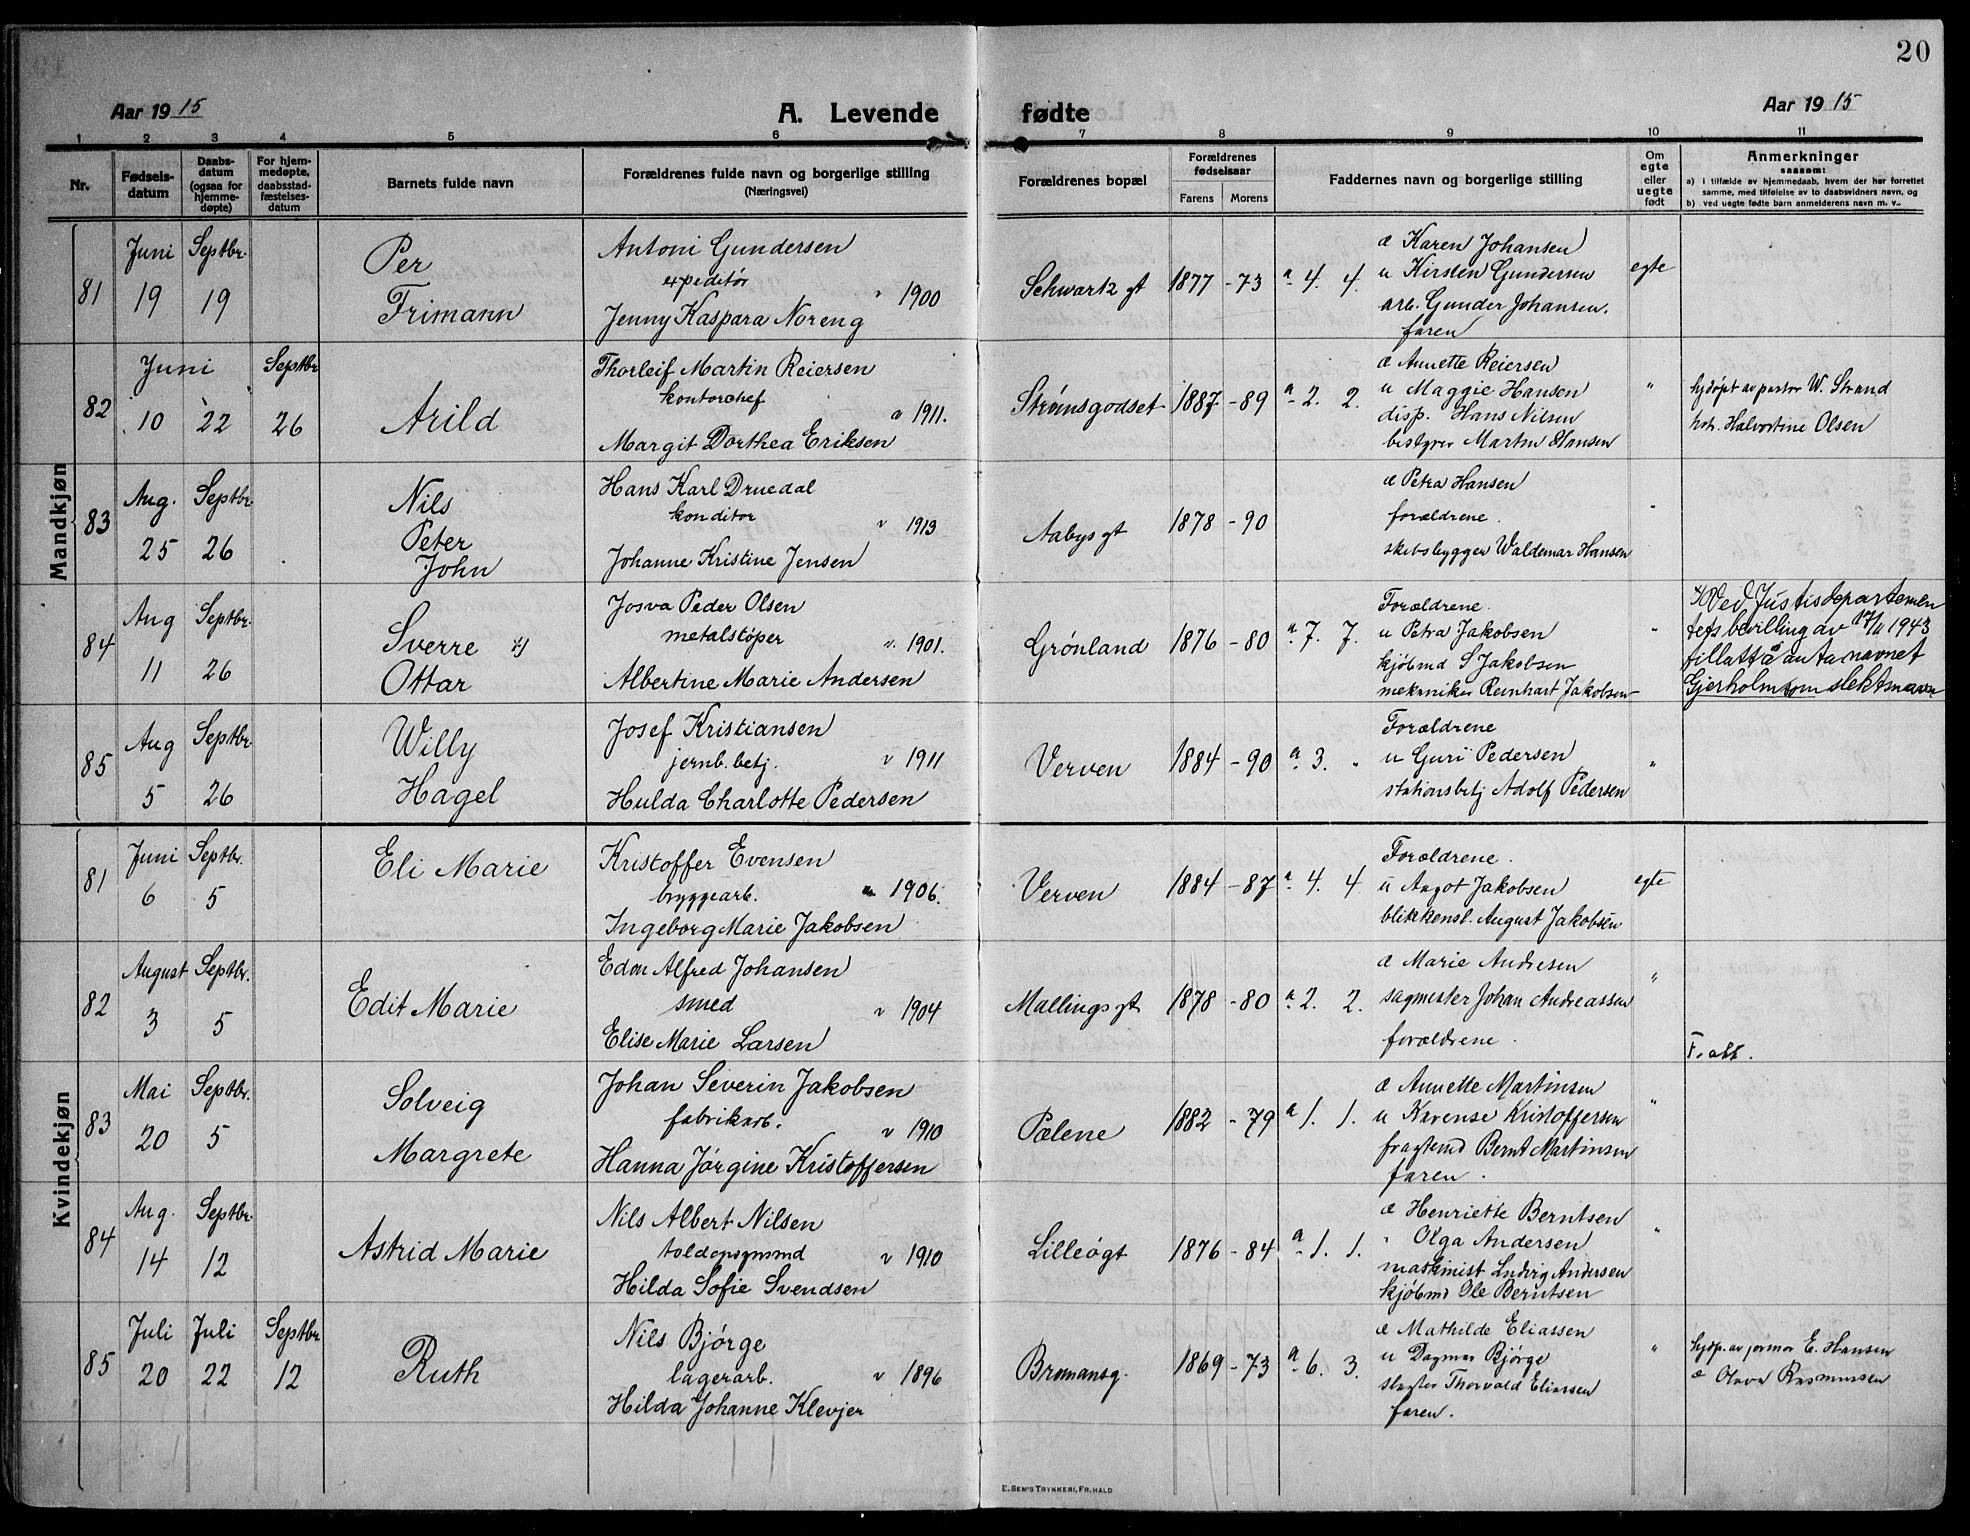 20
Aar 1915
A. Levende fødte
Aar 1915
1 2 3 4 5 6 7 8 9 10 11
Nr.
Fødselsdatum
Daabsdatum (ogsaa for hjemmedøpte)
For hjemmedøpte, daabsstadfæstelsesdatum
Barnets fulde navn
Forældrenes fulde navn og borgerlige stilling
(Næringsvei)
Forældrenes bopæl
Forældrenes fødselsaar
Farens Morens
Faddernes navn og borgerlige stilling
Om egte eller uegte født
Anmerkninger
saasom:
a) i tilfælde av hjemmedaab, hvem der har forrettet
samme, med tilføielse av to daabsvidners navn, og
b) ved uegte fødte barn anmelderens navn m. v..
Mandkjøn
81
Juni 19
Septbr. 19
Per
Frimann
Antoni Gundersen
expeditør
" 1900
Jenny Kaspara Noreng
Schwartz gt
1877 - 73
a 4. 4.
æ Karen Johansen
u Kirsten Gundersen
arb. Gunder Johansen.
faren
egte
82
Juni
10 22
Septbr 26
Arild
Thorleif Martin Reiersen
kontorchef
1911.
Margit Dorthea Eriksen
Strømsgodset
1887 - 89
a 2. 2.
æ Annette Reiersen
u Maggie Hansen
disp. Hans Nilsen
bestyrer Martin Hansen
"
hjdøpt av pastor W. Strand
Halvortine Olsen
83
Aug. 25
Septbr. 26
Nils
Peter
John
Hans Karl Druedal
konditor
" 1913
Johanne Kristine Jensen
Aabys gt
1878 - 90
æ Petra Hansen
forældrene.
skibsbygger Waldemar Hansen
"
84
Aug 11
Septbr. 26
Sverre x)
Ottar
Josva Peder Olsen
metalstøper
". 1901.
Albertine Marie Andersen
Grønland
1876 - 80
a 7. 7.
Forældrene.
u Petra Jakobsen
kjøbmd S Jakobsen
mekaniker Reinhart Jakobsen
"
x) Ved Justisdepartemen
tets bevilling av 17/11 1943
tillatt å anta navnet
Gjerholm som slektsnavn
85
Aug 5
Septbr. 26
Willy
Hagel
Josef Kristiansen
jernb.betj.
" 1911
Hulda Charlotte Pedersen
Verven
1884 - 90
a 3. "
Forældrene
u Guri Pedersen
stationsbetj Adolf Pedersen
"
Kvindekjøn
81
Juni 6
Septbr. 5
Eli Marie
Kristoffer Evensen
byggearb.
" 1906.
Ingeborg Marie Jakobsen
Verven
1884 - 87
a 4. 4
Forældrene.
u Aagot Jakobsen
blikkensl. August Jakobsen
egte
82
August 3
Septbr. 5
Edit Marie
Alfred Johansen
smed
" 1904
Elise Marie Larsen
Mallings gt
1878 - 80
a 2. 2.
æ Marie Andresen
sagmester Johan Andreassen
forældrene.
"
F. att.
83
Mai 20
Septbr. 5
Solveig
Margrete
Johan Severin Jakobsen
fabrikarb.
" 1910
Hanna Jørgine Kristoffersen
Pælene
1882 - 79
a 1. 1.
æ Annette Martinsen
u Karense Kristoffersen
fragtemd Bernt Martinsen
faren.
"
84
Aug. 14
Septbr. 12
Astrid Marie
Nils Albert Nilsen
toldopsynsmd
" 1910
Hilda Sofie Svendsen
Lilleøgt
1876 - 84
a 1. 1.
æ Henriette Berntsen
" Olga Andersen
maskinist Ludvig Andersen
kjøbmd Ole Berntsen
"
85
Juli 20
Juli 22
Septbr 12
Ruth
Nils Bjørge
lagerarb.
" 1896
Hilda Johanne Klevjer
Bromansg.
1869 - 73
a 6. 3.
æ Mathilde Eliassen
u Dagmar Bjørge
slagter Thorvald Eliassen
faren.
"
hjdp. av jormor E. Hansen
æ Olava Rasmussen
E. SEM'S TRYKKERI, FR.HALD